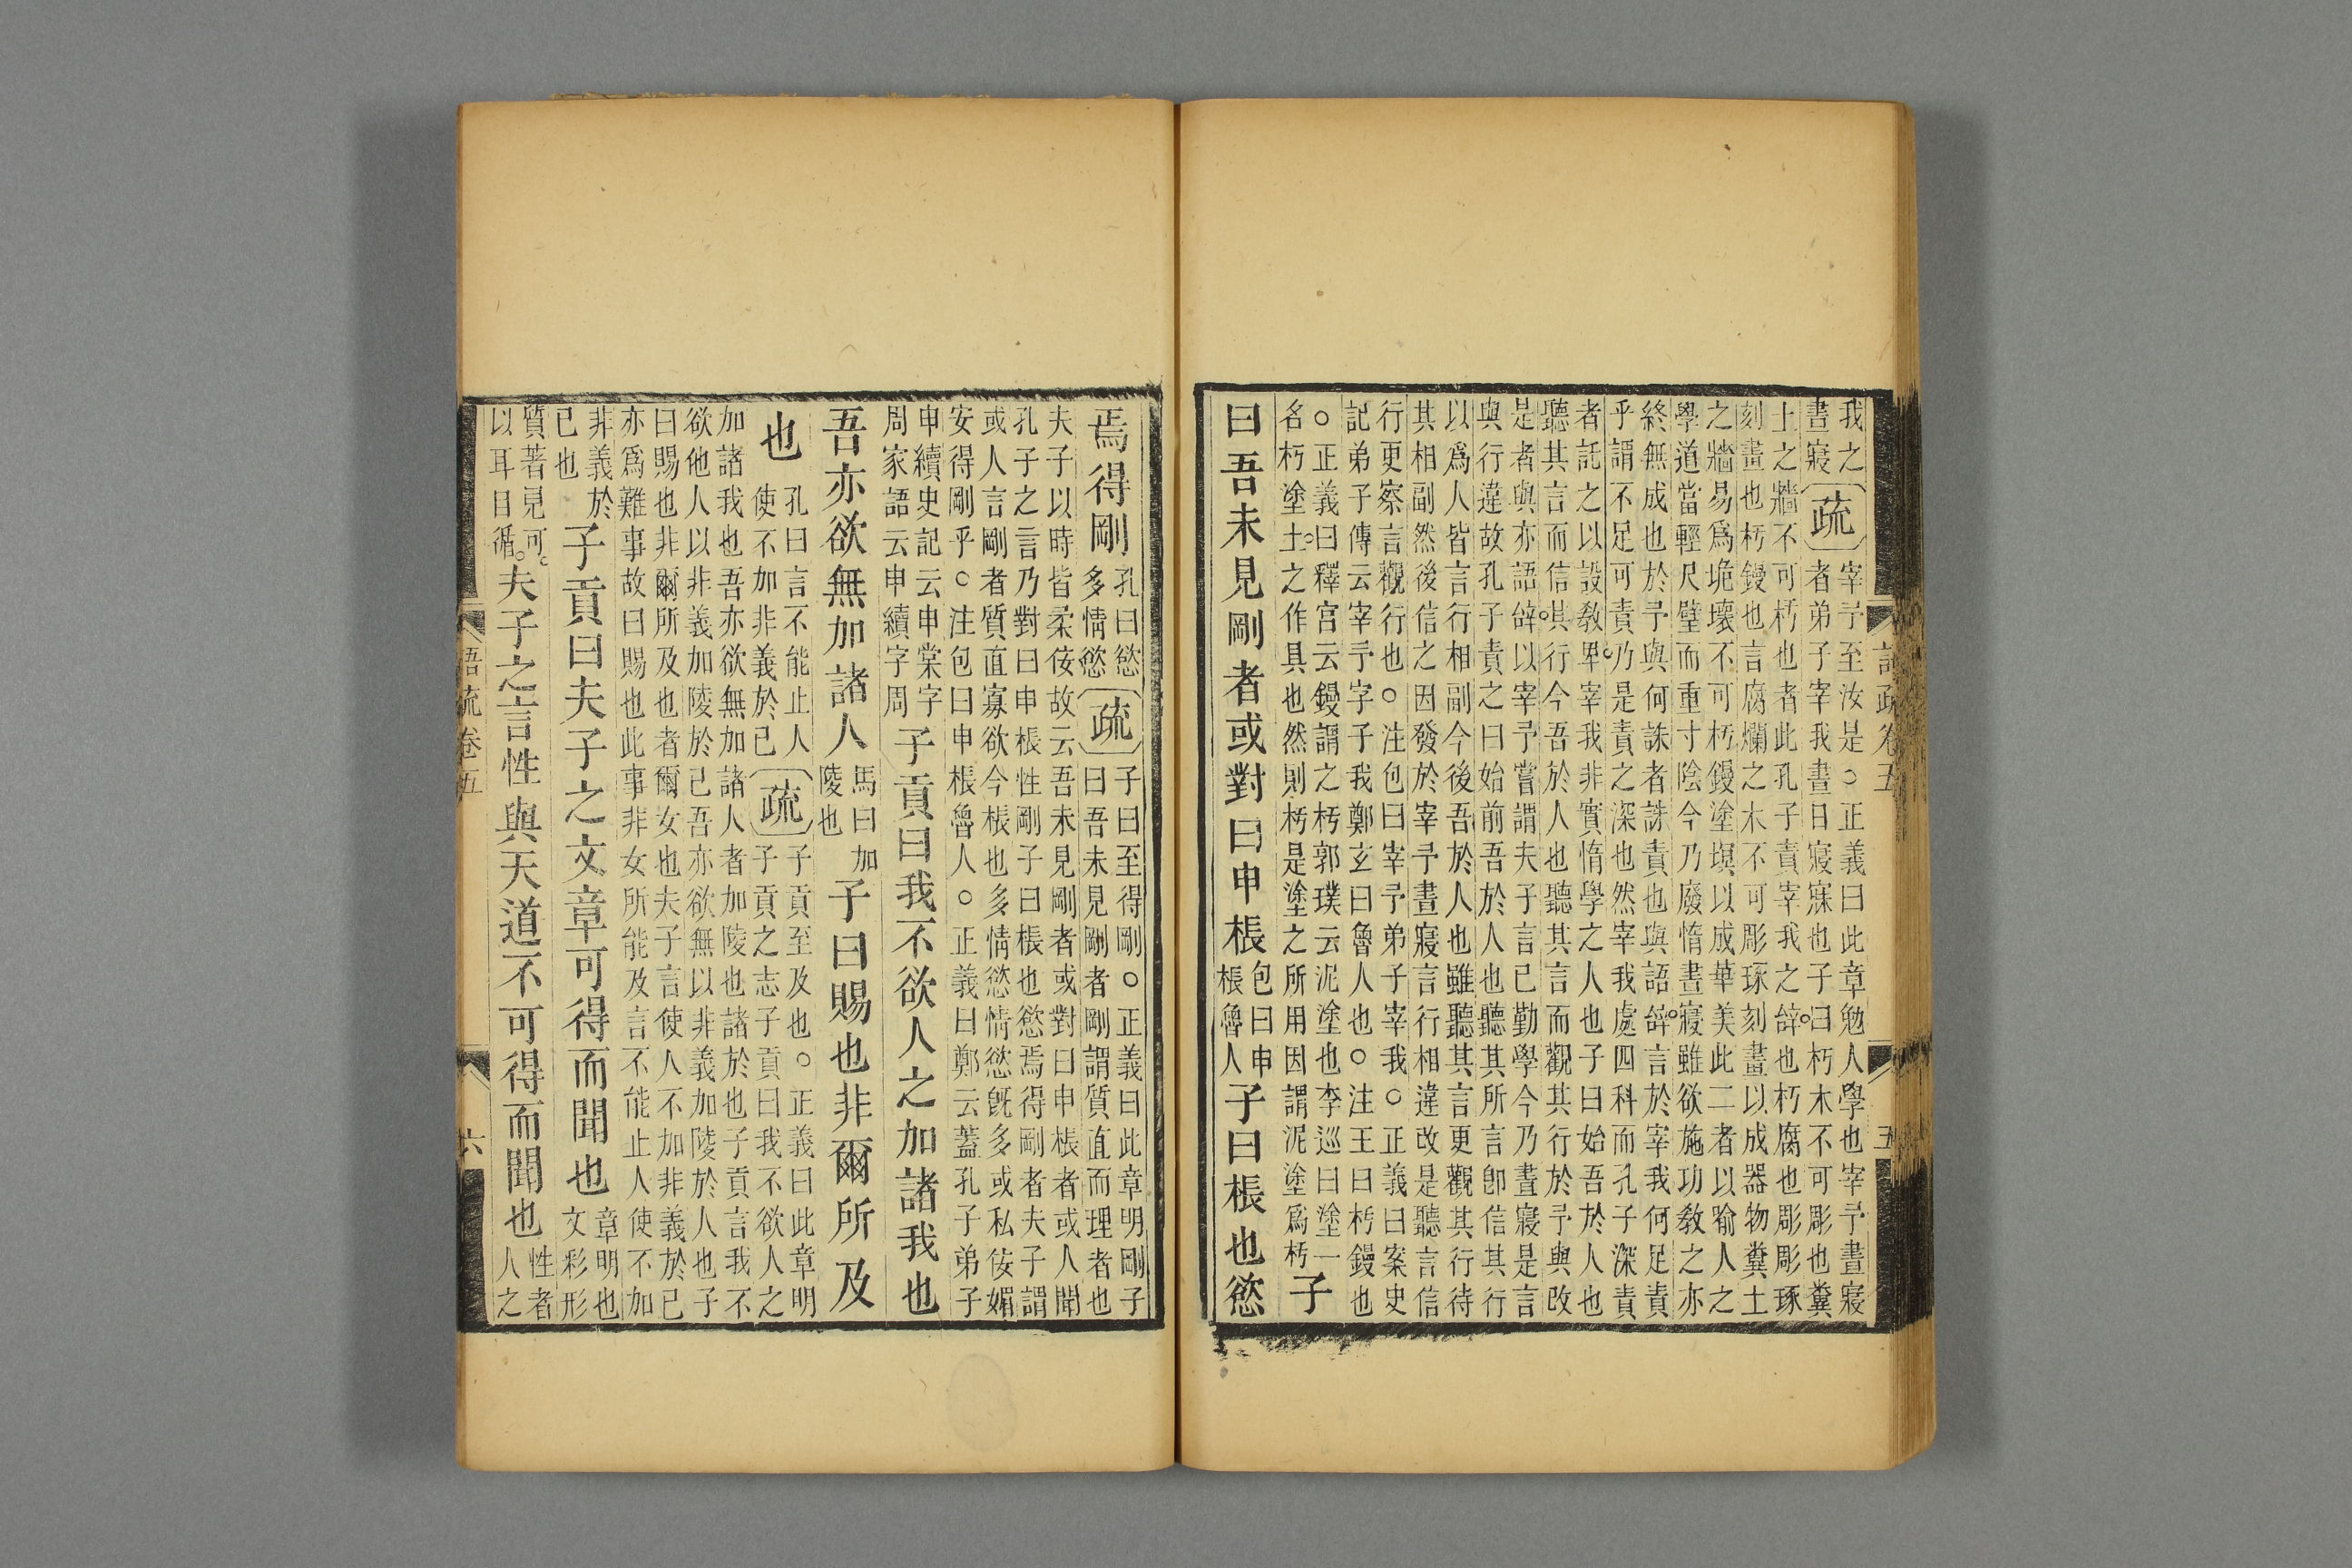 我之
晝寢
疏
宰予至汝是○正義曰此章勉人學也宰予晝寢
者弟子宰我晝日寢寐也子曰朽木不可彫也糞
土之牆不可杇也者此孔子責宰我之辭也朽腐也彫彫琢
刻畫也杇鏝也言腐爛之木不可彫琢刻畫以成器物糞土
之牆易爲垝壞不可杇鏝塗塓以成華美此二者以喻人之
學道當輕尺璧而重寸陰今乃廢惰晝寢雖欲施功教之亦
終無成也於予與何誅者誅責也與語辭言於宰我何足責
乎謂不足可責乃是責之深也然宰我處四科而孔子深責
者託之以設教卑宰我非實惰學之人也子曰始吾於人也
聽其言而信其行今吾於人也聽其言而觀其行於予與改
是者與亦語辭以宰予嘗謂夫子言已勤學今乃晝寢是言
與行違故孔子責之曰始前吾於人也聽其所言卽信其行
以爲人皆言行相副今後吾於人也雖聽其言更觀其行待
其相副然後信之因發於宰予晝寢言行相違改是聽言信
行更察言觀行也○注包曰宰予弟子宰我○正義曰案史
記弟子傳云宰予字子我鄭玄曰魯人也○注王曰杇鏝也
○正義曰釋宮云鏝謂之杇郭璞云泥塗也李巡曰塗一
名杇塗土之作具也然則杇是塗之所用因謂泥塗爲杇
子
曰吾未見剛者或對曰申棖
包曰申
棖魯人
子曰棖也慾
焉得剛
孔曰慾
多情慾
疏
子曰至得剛○正義曰此章明剛子
曰吾未見剛者剛謂質直而理者也
夫子以時皆柔佞故云吾未見剛者或對曰申棖者或人聞
孔子之言乃對曰申棖性剛子曰棖也慾焉得剛者夫子謂
或人言剛者質直寡欲今棖也多情慾情慾旣多或私佞媚
安得剛乎○注包曰申棖魯人○正義曰鄭云蓋孔子弟子
申續史記云申棠字
周家語云申續字周
子貢曰我不欲人之加諸我也
吾亦欲無加諸人
馬曰加
陵也
子曰賜也非爾所及
也
孔曰言不能止人
使不加非義於己
疏
子貢至及也○正義曰此章明
子貢之志子貢曰我不欲人之
加諸我也吾亦欲無加諸人者加陵也諸於也子貢言我不
欲他人以非義加陵於己吾亦欲無以非義加陵於人也子
曰賜也非爾所及也者爾女也夫子言使人不加非義於己
亦爲難事故曰賜也此事非女所能及言不能止人使不加
非義於
己也
子貢曰夫子之文章可得而聞也
章明也
文彩形
質著見可
以耳目循
夫子之言性與天道不可得而聞也
性者
人之
語疏卷五
六